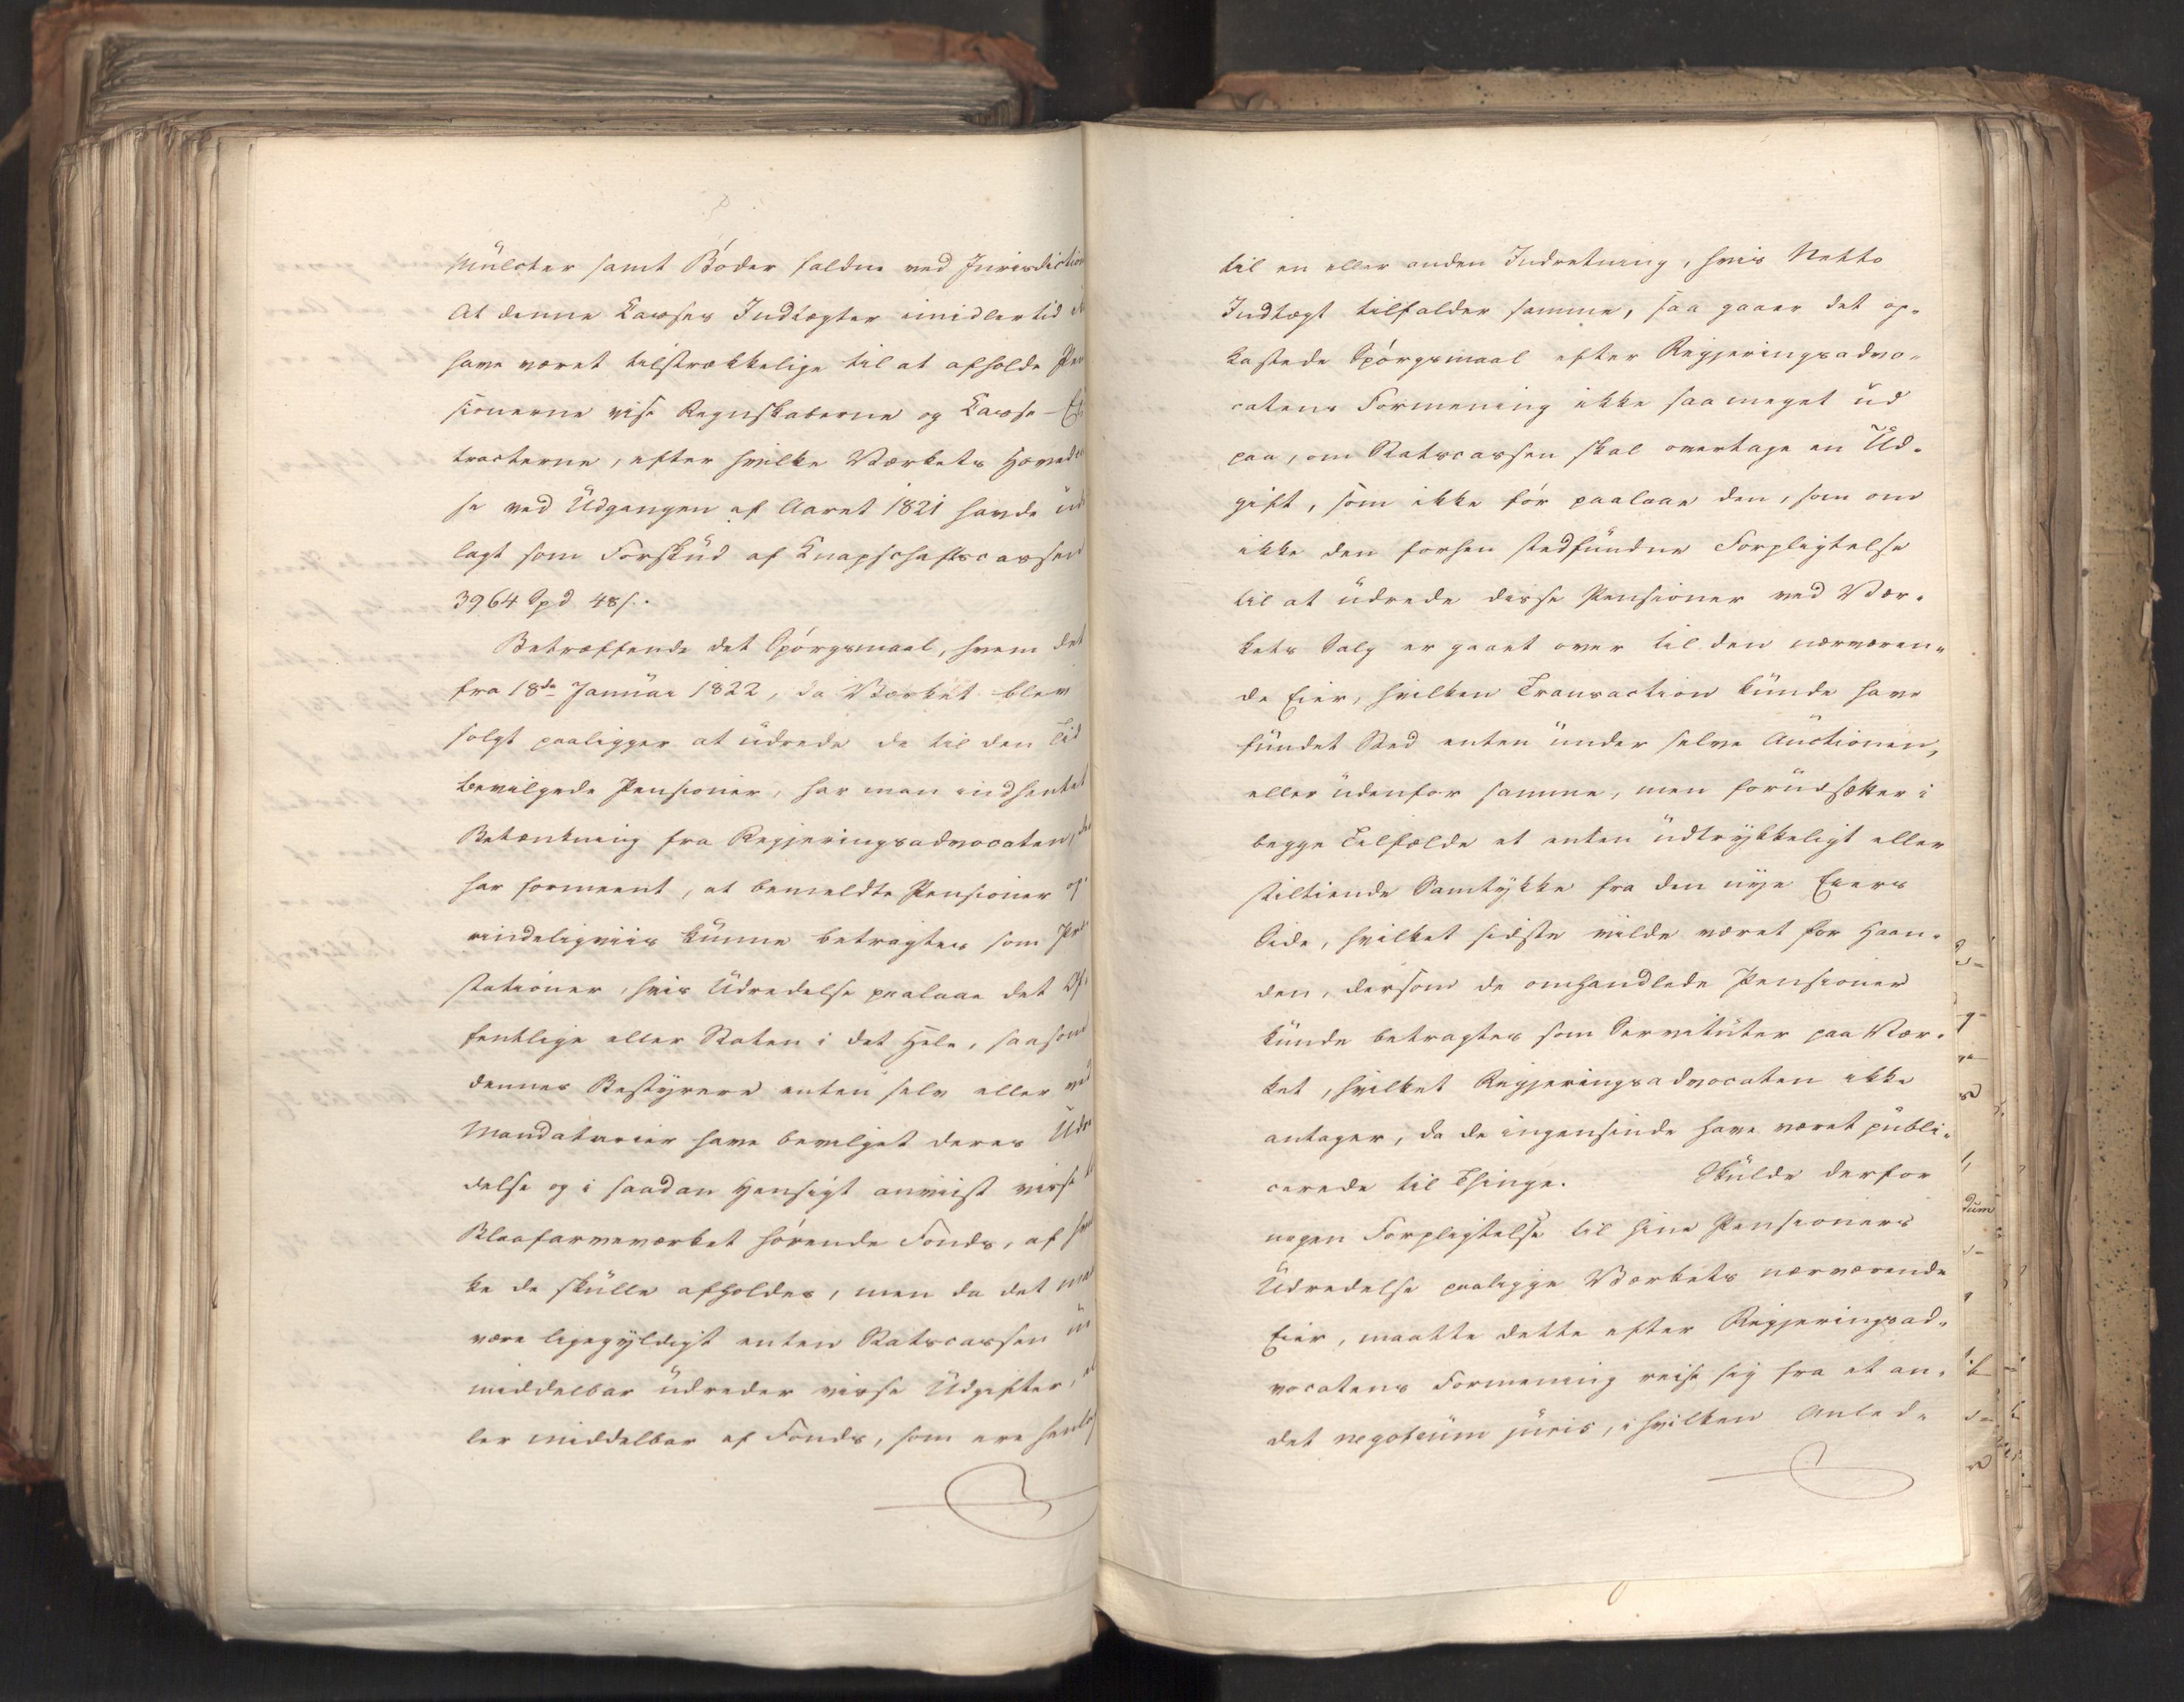 Mulcter samt Böder faldne ved Jurisdiction
At denne Casses Indtægter imidlertid
have været tilstrækkelige til at afholde Pen
sionerne vise Regnskaberne og Casse-Ex
tracterne, efter hvilke Værkets Hovedcas
se ved Udgangen af Aaret 1821 havde ud
lagt som Forskud af Knapschaftscassen
3964 Spd 48 s.
Betræffende det Spörgsmaal, hvem det
fra 18de Januar 1822, da Værket blev
solgt paaligger at udrede de til den Tid
bevilgede Pensioner, har man indhentet
Betænkning fra Regjeringsadvocaten, der
har formeent, at bemeldte Pensioner op
rindeligviis kunne betragtes som Præ
stationer, hvis Udredelse paalaae det Of
fentlige eller Staten i det Hele, saasom
dennes Bestyrere enten selv eller ved
Mandatarier have bevilget deres Udre
delse og i saadan Hensigt anviist visse
Blaafarveværket hörende Fonds, af hvil
ke de skulle afholdes, men da det maa
være ligegyldigt enten Statscassen u
middelbar udreder visse Udgifter, el
ler middelbar af Fonds, som ere henlag
til en eller anden Indretning, hvis Netto
Indtægt tilfalder samme, saa gaaer det op-
kastede Spörgsmaal efter Regjeringsadvo-
catens Formening ikke saa meget ud
paa, om Statscassen skal overtage en Ud-
gift, som ikke för paalaae den, som om
ikke den forhen stedfundne Forpligtelse
til at udrede disse Pensioner ved Vær-
kets Salg er gaaet over til den nærværen-
de Eier, hvilken Transaction kunde have
fundet Sted enten under selve Auctionen,
eller udenfor samme, men forudsætter i
begge Tilfælde et enten udtrykkeligt eller
stiltiende Samtykke fra den nye Eiers
Side, hvilket sidste vilde været for Haan-
den, dersom de omhandlede Pensioner
kunde betragtes som Servituter paa Vær-
ket, hvilket Regjeringsadvocaten ikke
antager, da de ingensinde have været publi-
cerede til Thinge. Skulde derfor
nogen Forpligtelse til hine Pensioners
Udredelse paaligge Værkets nærværende
Eier, maatte dette efter Regjeringsad-
vocatens Formening reise sig fra et an-
det negotium juris, i hvilken Anled-